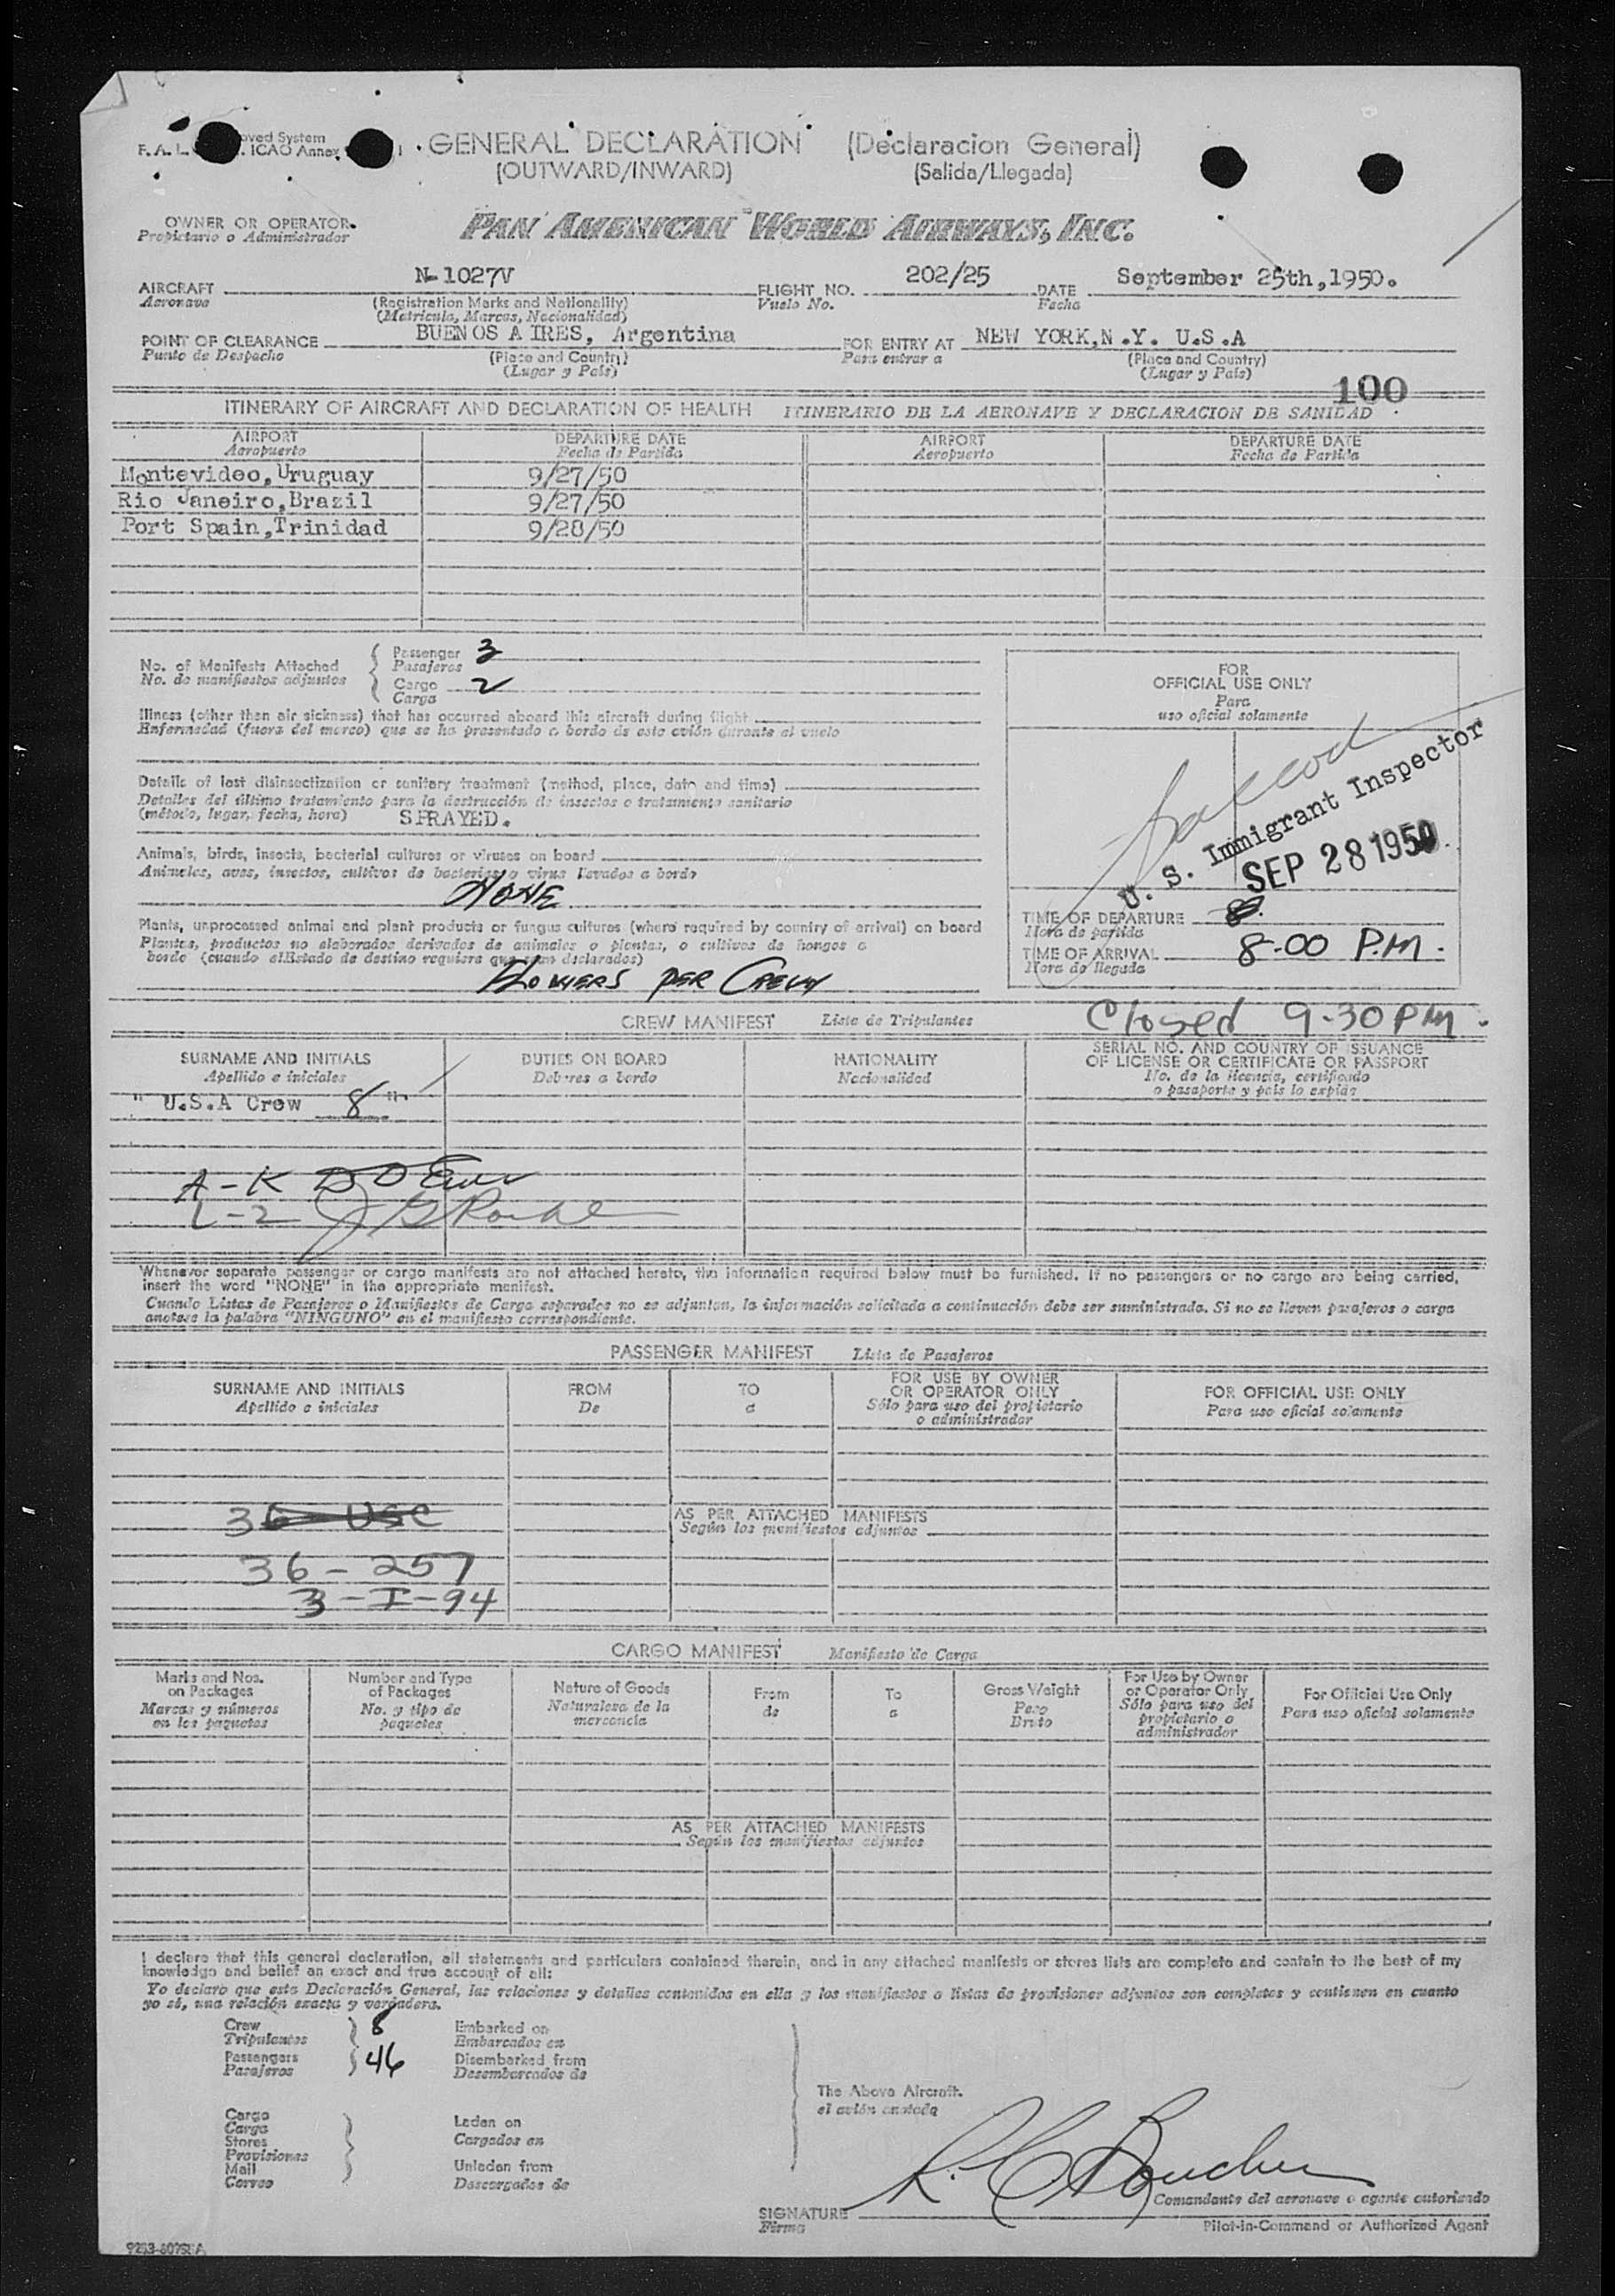 F. A. L. oved System
ICAO Annex
GENERAL DECLARATION (Declaracion General)
(OUTWARD/INWARD) (Salida/Llegada)
OWNER OR OPERATOR
Propietario o Administrador
PAN AMERICAN WORLD AIRWAYS, INC.
AIRCRAFT N-1027V FLIGHT NO. 202/25 DATE September 25th,1950.
Aeronave (Registration Marks and Nationality) Vuelo No. Fecha
(Matricula, Marcas, Nacionalidad)
POINT OF CLEARANCE BUENOS AIRES, Argentina FOR ENTRY AT NEW YORK,N.Y. U.S.A
Punto de Despacho (Place and Country) Para entrar a (Place and Country)
(Lugar y País) (Lugar y País)
100
ITINERARY OF AIRCRAFT AND DECLARATION OF HEALTH ITINERARIO DE LA AERONAVE Y DECLARACION DE SANIDAD
AIRPORT DEPARTURE DATE AIRPORT DEPARTURE DATE
Aeropuerto Fecha de Partida Aeropuerto Fecha de Partida
Montevideo,Uruguay 9/27/50
Rio Janeiro,Brazil 9/27/50
Port Spain,Trinidad 9/28/50
No. of Manifests Attached
No. de manifiestos adjuntos
Passenger 3
Pasajeros
Cargo 2
Carga
Illness (other than air sickness) that has occurred aboard this aircraft during flight
Enfermedad (fuera del mareo) que se ha presentado a bordo de este avión durante el vuelo
Details of last disinsectization or sanitary treatment (method, place, date and time)
Detalles del último tratamiento para la destrucción de insectos o tratamiento sanitario
(método, lugar, fecha, hora) SPRAYED.
Animals, birds, insects, bacterial cultures or viruses on board
Animales, aves, insectos, cultivos de bacterias o virus llevados a bordo
NONE
Plants, unprocessed animal and plant products or fungus cultures (where required by country of arrival) on board
Plantas, productos no elaborados derivados de animales o plantas, o cultivos de hongos a
bordo (cuando el Estado de destino requiera que sean declarados)
FLOWERS PER CREW
FOR
OFFICIAL USE ONLY
Para
uso oficial solamente
U. S. Immigrant Inspector
SEP 28 1950
TIME OF DEPARTURE
Hora de partida
TIME OF ARRIVAL 8.00 P.M.
Hora de llegada
Closed 9-30 PM.
CREW MANIFEST Lista de Tripulantes
SURNAME AND INITIALS DUTIES ON BOARD NATIONALITY SERIAL NO. AND COUNTRY OF ISSUANCE
Apellido e iniciales Deberes a bordo Nacionalidad OF LICENSE OR CERTIFICATE OR PASSPORT
No. de la licencia, certificado
o pasaporte y país lo expide
" U.S.A Crew 8 "
A-K
L-Z
Whenever separate passenger or cargo manifests are not attached hereto, the information required below must be furnished. If no passengers or no cargo are being carried,
insert the word "NONE" in the appropriate manifest.
Cuando Listas de Pasajeros o Manifiestos de Carga separados no se adjuntan, la información solicitada a continuación debe ser suministrada. Si no se lleven pasajeros o carga
anotese la palabra "NINGUNO" en el manifiesto correspondiente.
PASSENGER MANIFEST Lista de Pasajeros
SURNAME AND INITIALS FROM TO FOR USE BY OWNER FOR OFFICIAL USE ONLY
Apellido e iniciales De a OR OPERATOR ONLY Para uso oficial solamente
Sólo para uso del propietario
o administrador
36 - USC
AS PER ATTACHED MANIFESTS
Según los manifiestos adjuntos
36 - 257
3 - I-94
CARGO MANIFEST Manifiesto de Carga
Marks and Nos. Number and Type Nature of Goods From To Gross Weight For Use by Owner For Official Use Only
on Packages of Packages Naturaleza de la de a Peso or Operator Only Para uso oficial solamente
Marcas y números No. y tipo de mercancía Bruto Sólo para uso del
en los paquetes paquetes propietario o
administrador
AS PER ATTACHED MANIFESTS
Según los manifiestos adjuntos
I declare that this general declaration, all statements and particulars contained therein, and in any attached manifests or stores lists are complete and contain to the best of my
knowledge and belief an exact and true account of all:
Yo declaro que esta Declaración General, las relaciones y detalles contenidos en ella y los manifiestos o listas de provisiones adjuntos son completos y contienen en cuanto
yo sé, una relación exacta y verdadera.
Crew 8 Embarked on
Tripulantes Embarcados en
Passengers 46 Disembarked from
Pasajeros Desembarcados de
The Above Aircraft.
el avión anotado
Cargo
Carga Laden on
Stores Cargados en
Provisiones
Mail Unladen from
Correo Descargados de
SIGNATURE R. C. Boucher
Firma
Comandante del aeronave o agente autorizado
Pilot-in-Command or Authorized Agent